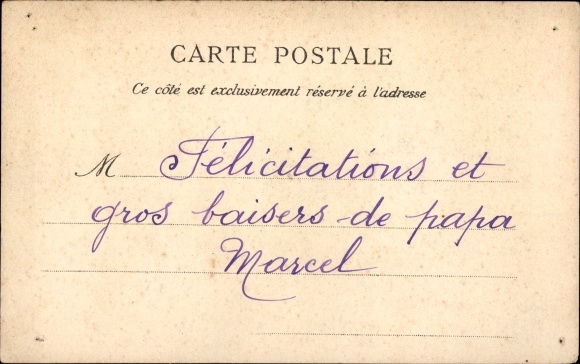 CARTE POSTALE
Ce côté est exclusivement réservé à l'adresse
M Félicitations et
gros baisers de papa
Marcel